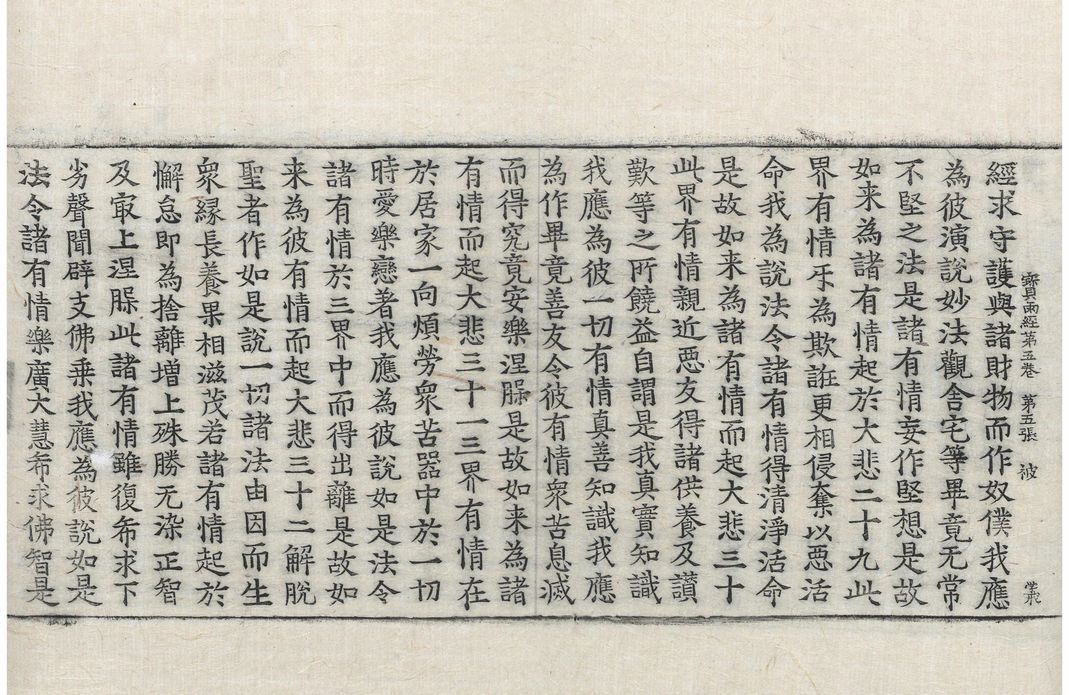 經求守護與諸財物而作奴僕我應
寶雨經第五卷 第五張 被
為彼演說妙法觀舍宅等畢竟无常
不堅之法是諸有情妄作堅想是故
如来為諸有情起於大悲二十九此
界有情牙為欺誑更相侵奪以惡活
命我為說法令諸有情得清淨活命
是故如来為諸有情而起大悲三十
此界有情親近惡友得諸供養及讃
歎等之所饒益自謂是我真實知識
我應為彼一切有情真善知識我應
為作畢竟善友令彼有情衆苦息滅
而得究竟安樂涅槃是故如来為諸
有情而起大悲三十一三界有情在
於居家一向煩勞衆苦器中於一切
時愛樂戀著我應為彼說如是法令
諸有情於三界中而得出離是故如
来為彼有情而起大悲三十二解脫
聖者作如是說一切諸法由因而生
衆緣長養果相滋茂若諸有情起於
懈怠即為捨離增上殊勝无染正智
及㝡上涅槃此諸有情雖復希求下
劣聲聞辟支佛乗我應為彼說如是
法令諸有情樂廣大慧希求佛智是